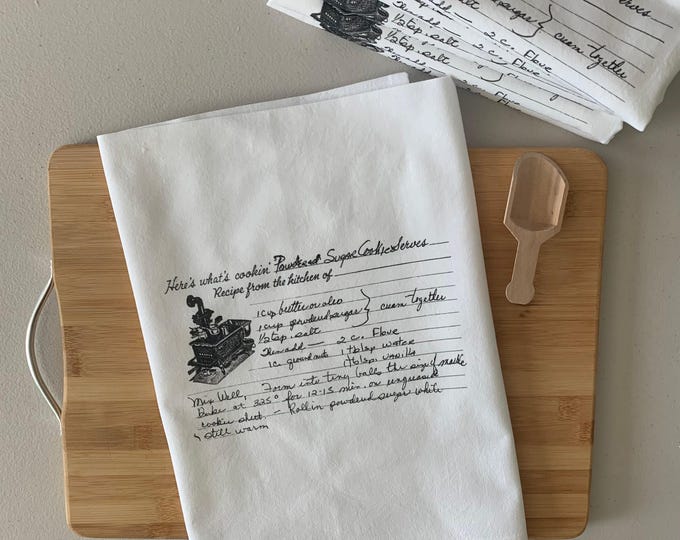 Serves
1 cup powdered sugar
1/2 tsp. salt
cream together
Then add — 2 c. Flove
Here's what's cookin' Powdered Sugar Cookies Serves
Recipe from the kitchen of
1 cup butter or oleo
1 cup powdered sugar
1/2 tsp. salt
cream together
Then add — 2 c. Flove
1c ground nuts 1 tblsp water
1 tblsp vanilla
Mix Well, Form into tiny balls the size of marble
Bake at 325° for 12-15 min. on ungreased
cookie sheet. — Roll in powdered sugar while
still warm